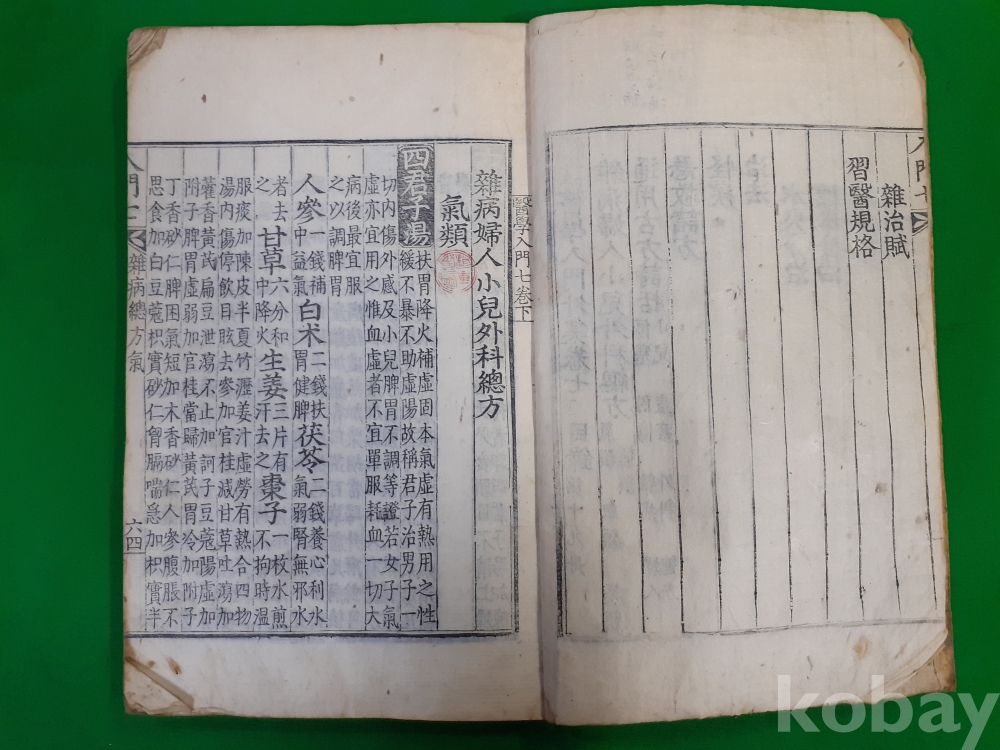 入門七
雜治賦
習醫規格
醫學入門七卷下
雜病婦人小兒外科總方
氣類
四君子湯扶胃降火補虛固本氣虛有熱用之性
緩不暴不助虛陽故稱君子治男子一
切內傷外感及小兒脾胃不調等證若女子氣
虛亦宜用之惟血虛者不宜單服耗血一切大
病後最宜服
之以調脾胃
人參一錢補中益氣白朮二錢扶胃健脾茯苓二錢養心利水氣弱腎無邪水
者去之甘草六分和中降火生姜三片有汗去之棗子一枚水煎不拘時溫
服痰加陳皮半夏竹瀝姜汁虛勞有熱合四物
湯內傷停飲目眩去參加官桂減甘草吐瀉加
藿香黃芪扁豆泄瀉不止加訶子豆蔻陽虛加
附子脾胃虛弱加官桂當歸黃芪胃冷加附子
丁香砂仁脾困氣短加木香砂仁人參腹脹不
思食加白豆蔻枳實砂仁胷膈喘急加枳實半
入門七 雜病總方氣 六四
kobay